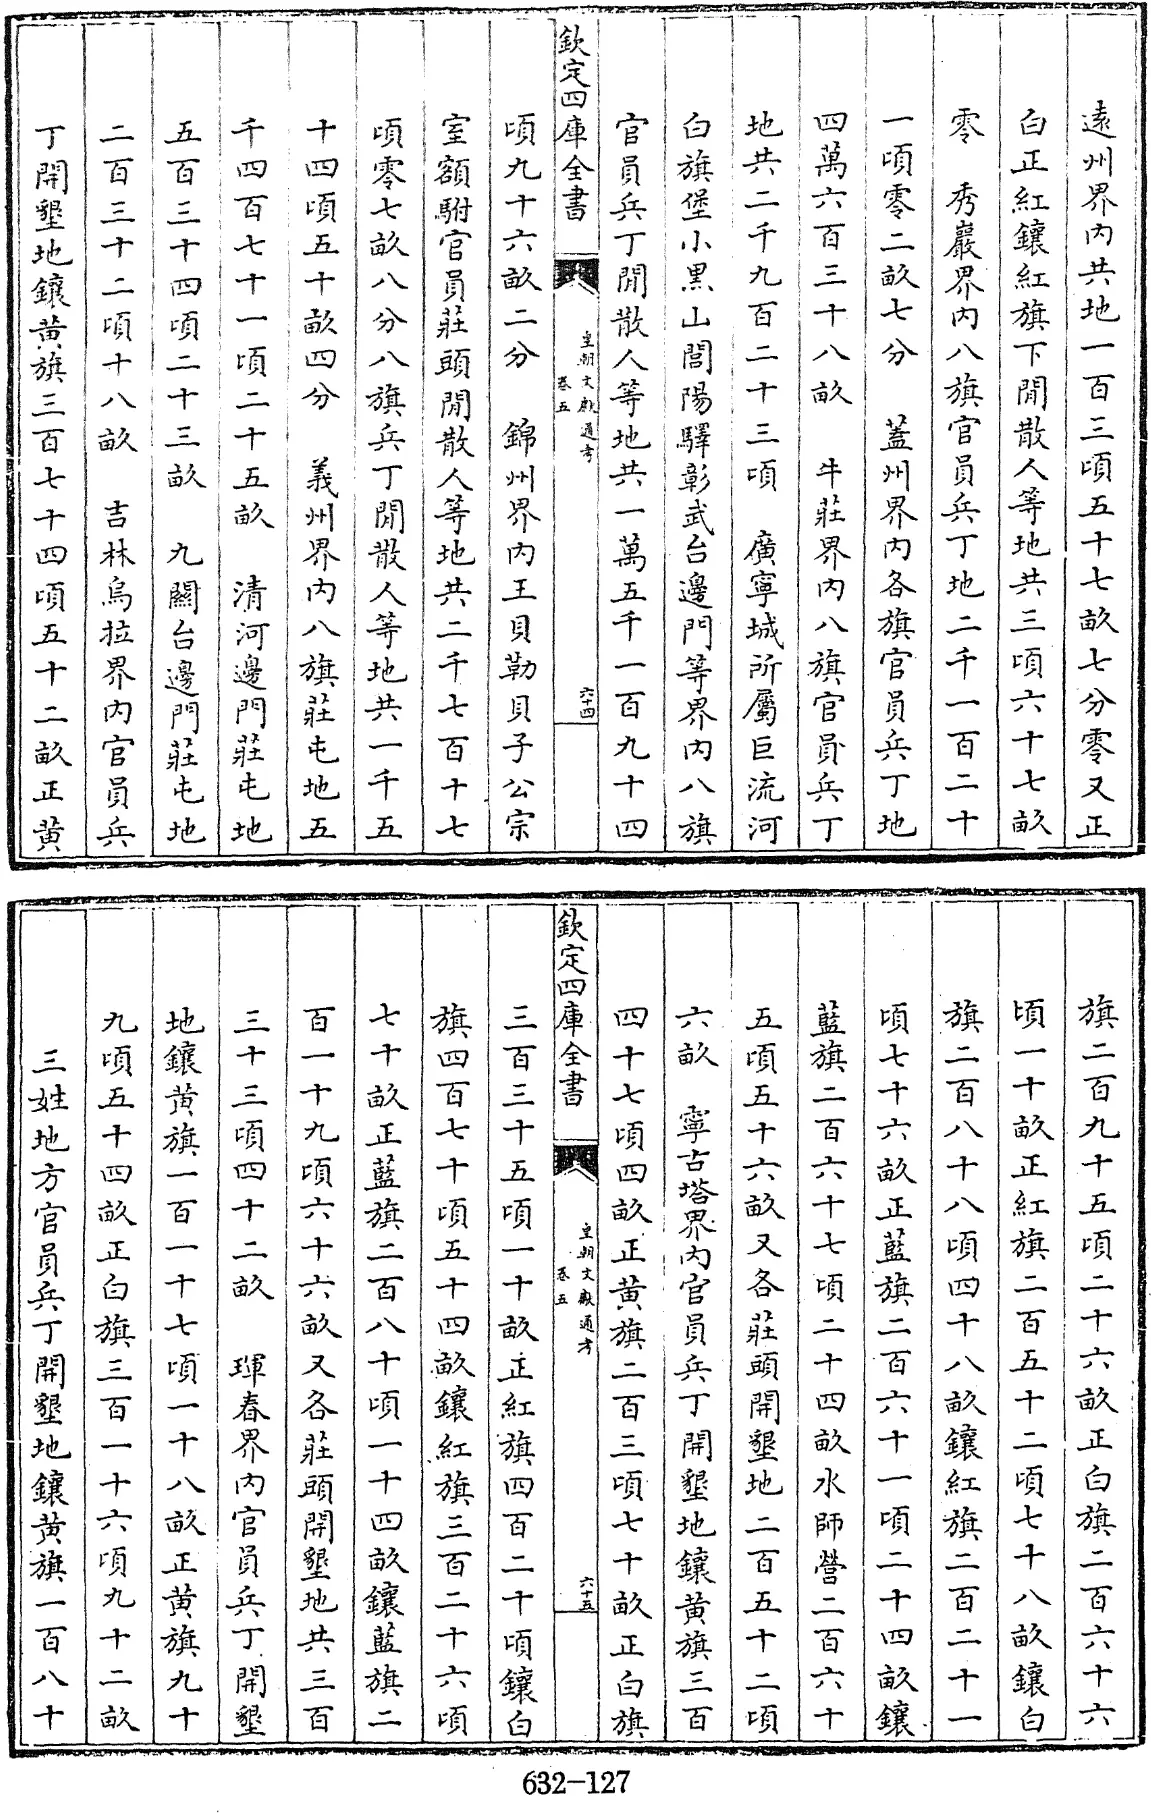 遠州界内共地一百三頃五十七畝七分零又正
白正紅鑲紅旗下閒散人等地共三頃六十七畝
零　秀巖界内八旗官員兵丁地二千一百二十
一頃零二畝七分　蓋州界内各旗官員兵丁地
四萬六百三十八畝　牛莊界内八旗官員兵丁
地共二千九百二十三頃　廣寧城所屬巨流河
白旗堡小黑山閭陽驛彰武台邊門等界内八旗
官員兵丁閒散人等地共一萬五千一百九十四
欽定四庫全書
皇朝文獻通考
卷五
六十四
頃九十六畝二分　錦州界内王貝勒貝子公宗
室額駙官員莊頭閒散人等地共二千七百十七
頃零七畝八分八旗兵丁閒散人等地共一千五
十四頃五十畝四分　義州界内八旗莊屯地五
千四百七十一頃二十五畝　清河邊門莊屯地
五百三十四頃二十三畝　九關台邊門莊屯地
二百三十二頃十八畝　吉林烏拉界内官員兵
丁開墾地鑲黄旗三百七十四頃五十二畝正黄
旗二百九十五頃二十六畝正白旗二百六十六
頃一十畝正紅旗二百五十二頃七十八畝鑲白
旗二百八十八頃四十八畝鑲紅旗二百二十一
頃七十六畝正藍旗二百六十一頃二十四畝鑲
藍旗二百六十七頃二十四畝水師營二百六十
五頃五十六畝又各莊頭開墾地二百五十二頃
六畝　寧古塔界内官員兵丁開墾地鑲黄旗三百
四十七頃四畝正黄旗二百三頃七十畝正白旗
欽定四庫全書
皇朝文獻通考
卷五
六十五
三百三十五頃一十畝正紅旗四百二十頃鑲白
旗四百七十頃五十四畝鑲紅旗三百二十六頃
七十畝正藍旗二百八十頃一十四畝鑲藍旗二
百一十九頃六十六畝又各莊頭開墾地共三百
三十三頃四十二畝　琿春界内官員兵丁開墾
地鑲黄旗一百一十七頃一十八畝正黄旗九十
九頃五十四畝正白旗三百一十六頃九十二畝
三姓地方官員兵丁開墾地鑲黄旗一百八十
632-127